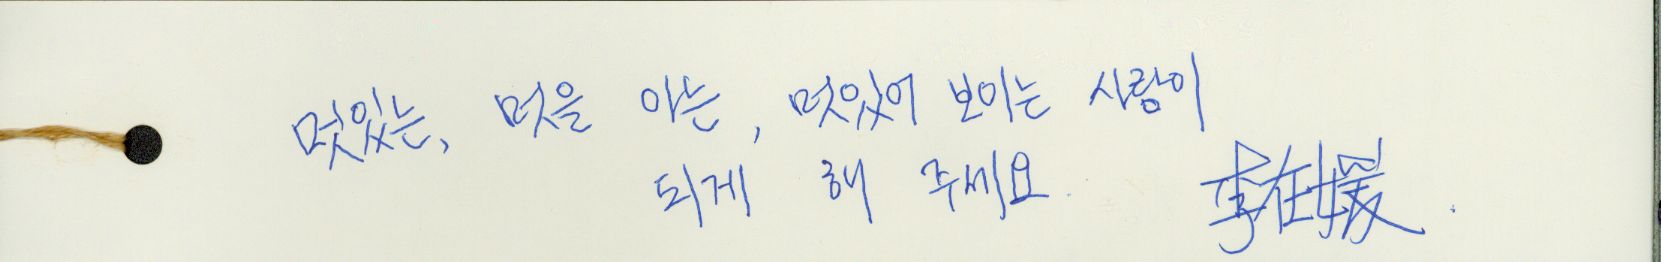 멋있는, 멋을 아는, 멋있어 보이는 사람이
되게 해 주세요 李在媛.